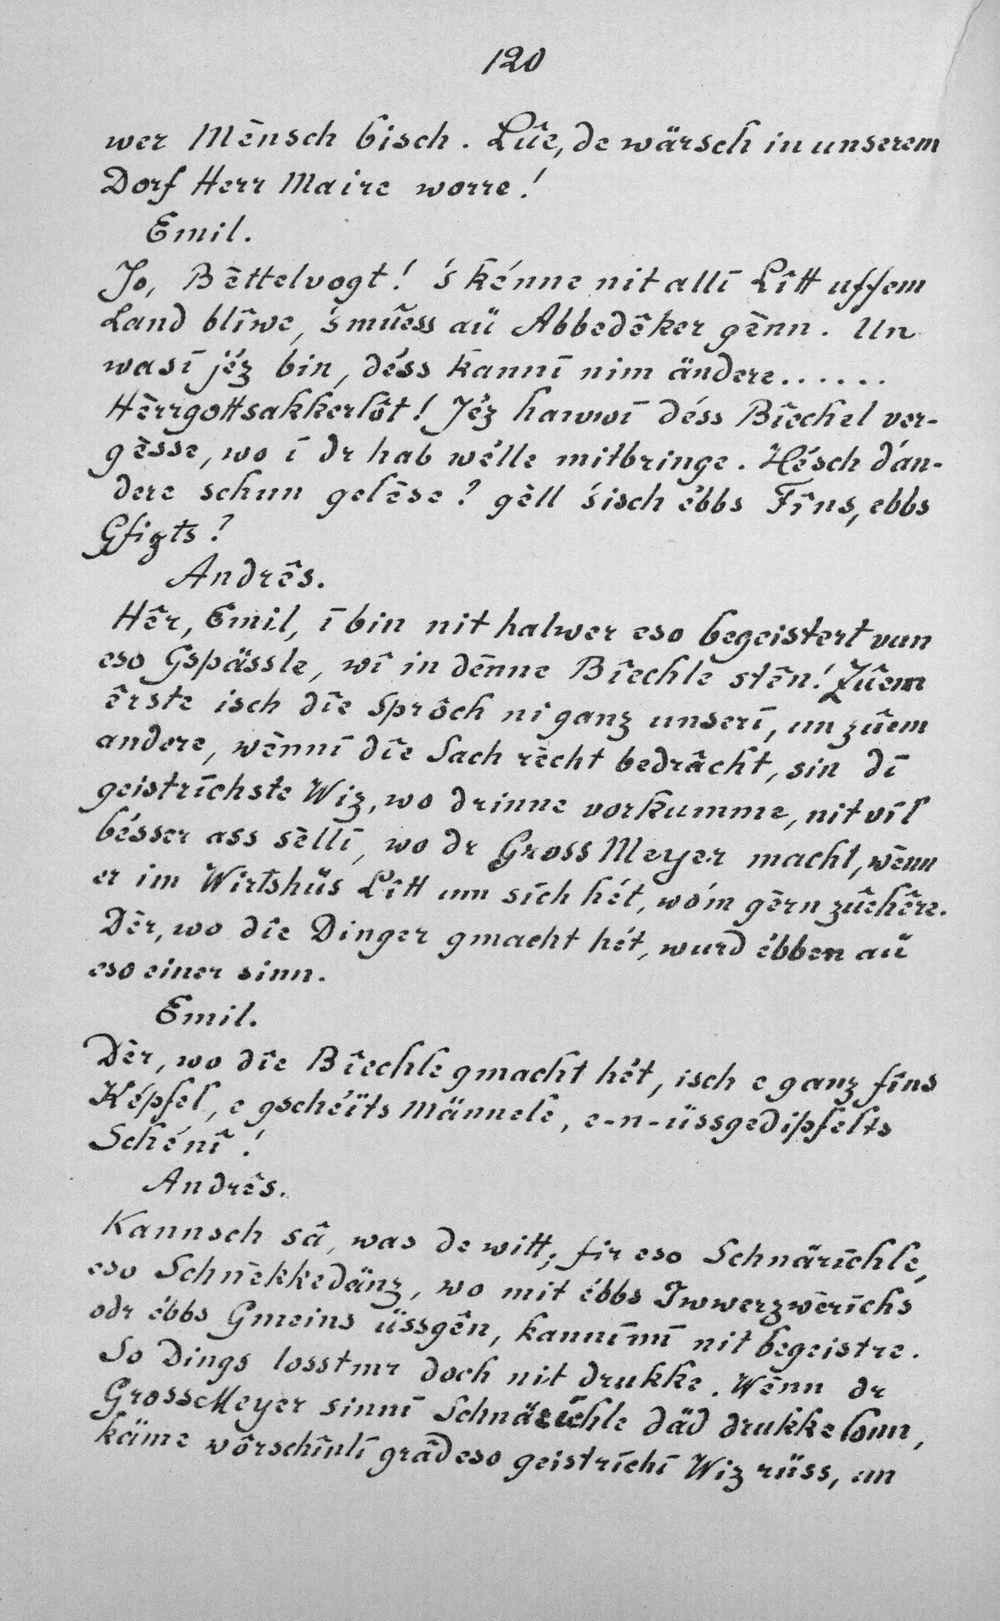 120
wer Mènsch bisch. Lûe, de wärsch in unserem
Dorf Herr Maire worre!
Emil.
Jo, Bèttelvogt! 's kénne nit allī Lîtt uffem
Land blîwe, 's mûess aü Abbedêker gènn. Un
was ī jéz bin, déss kannī nim ändere......
Hèrrgottsakkerlôt! Jéz hawwī déss Bîechel ver-
gèsse, wo ī dr hab wélle mitbringe. Hésch d'an-
dere schun gelèse? gèll 's isch ébbs Fîns, ebbs
Gfizts?
Andrês.
Hêr, Emil, ī bin nit halwer eso begeistert vun
eso Gspässle, wî in dènne Bîechle stên! Zûem
êrste isch dîe Sprôch ni ganz unserī, un zûem
andere, wènnī dîe Sach rècht bedrâcht, sin dī
geistrīchste Wiz, wo drinne vorkumme, nit vîl
bésser ass sèllī, wo dr Gross Meyer macht, wènn
er im Wirtshüs Lîtt um sīch hét, wo'm gèrn zûehêre.
Dèr, wo dîe Dinger gmacht hét, wurd ébben aü
eso einer sinn.
Emil.
Dèr, wo dîe Bîechle gmacht hét, isch e ganz fîns
Képfel, e gschéits Männele, e-n-üssgedipfelts
Schénî!
Andrês.
Kannsch sâ, was de witt; fir eso Schnärīchle,
eso Schnèkkedänz, wo mit ébbs Iwwerzwèrīchs
odr ébbs Gmeins üssgên, kannīmī nit begeistre.
So Dings losst mr doch nit drukke. Wènn dr
Gross Meyer sinnī Schnärīchle däd drukke lonn,
käme wôrschînlī grâd eso geistrīchī Wiz rüss, un